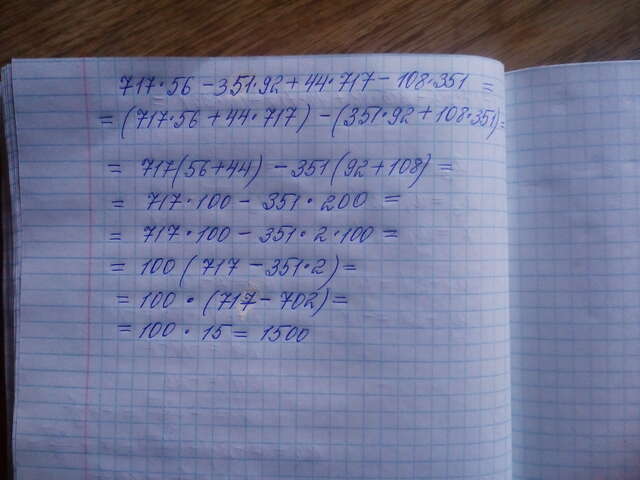 717·56 - 351·92 + 44·717 - 108·351 =
= (717·56 + 44·717) - (351·92 + 108·351) =
= 717(56+44) - 351(92+108) =
= 717·100 - 351·200 =
= 717·100 - 351·2·100 =
= 100(717 - 351·2) =
= 100·(717 - 702) =
= 100·15 = 1500